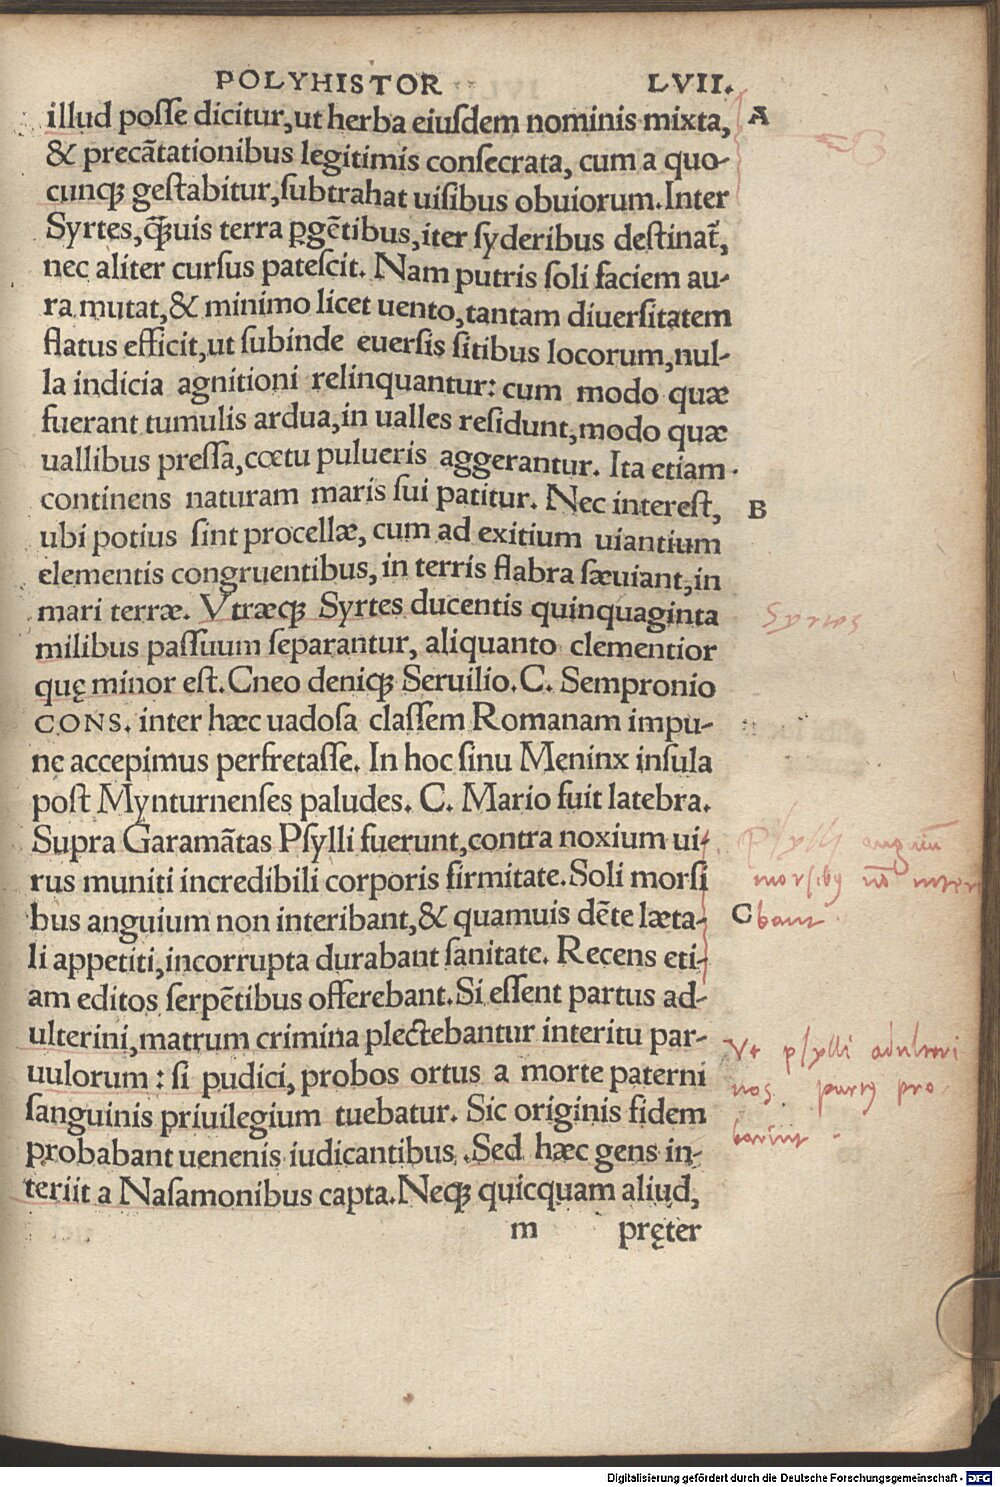 POLYHISTOR LVII.
illud posse dicitur, ut herba eiusdem nominis mixta, A
& precãtationibus legitimis consecrata, cum a quo-
cunq; gestabitur, subtrahat uisibus obuiorum. Inter
Syrtes, q̃uis terra ꝑgẽtibus, iter syderibus destinat᷑,
nec aliter cursus patescit. Nam putris soli faciem au-
ra mutat, & minimo licet uento, tantam diuersitatem
flatus efficit, ut subinde euersis sitibus locorum, nul-
la indicia agnitioni relinquantur: cum modo quæ
fuerant tumulis ardua, in ualles residunt, modo quæ
uallibus pressa, cœtu pulueris aggerantur. Ita etiam
continens naturam maris sui patitur. Nec interest, B
ubi potius sint procellæ, cum ad exitium uiantium
elementis congruentibus, in terris flabra sæuiant, in
mari terræ. Vtræq; Syrtes ducentis quinquaginta
Syrtes
milibus passuum separantur, aliquanto clementior
quę minor est. Cneo deniq; Seruilio. C. Sempronio
CONS. inter hæc uadosa classem Romanam impu-
ne accepimus perfretasse. In hoc sinu Meninx insula
post Mynturnenses paludes. C. Mario fuit latebra.
Supra Garamãtas Psylli fuerunt, contra noxium ui-
rus muniti incredibili corporis firmitate. Soli morsi
bus anguium non interibant, & quamuis dẽte læta- C
li appetiti, incorrupta durabant sanitate. Recens eti-
am editos serpẽtibus offerebant. Si essent partus ad-
ulterini, matrum crimina plectebantur interitu par-
uulorum: si pudici, probos ortus a morte paterni
sanguinis priuilegium tuebatur. Sic originis fidem
probabant uenenis iudicantibus. Sed hæc gens in-
teriit a Nasamonibus capta. Neq; quicquam aliud,
m pręter
Psylli anguiũ
morsibꝰ nõ interi
bant
Vt psylli adulteri
nos partꝰ pro-
barint
Digitalisierung gefördert durch die Deutsche Forschungsgemeinschaft - DFG